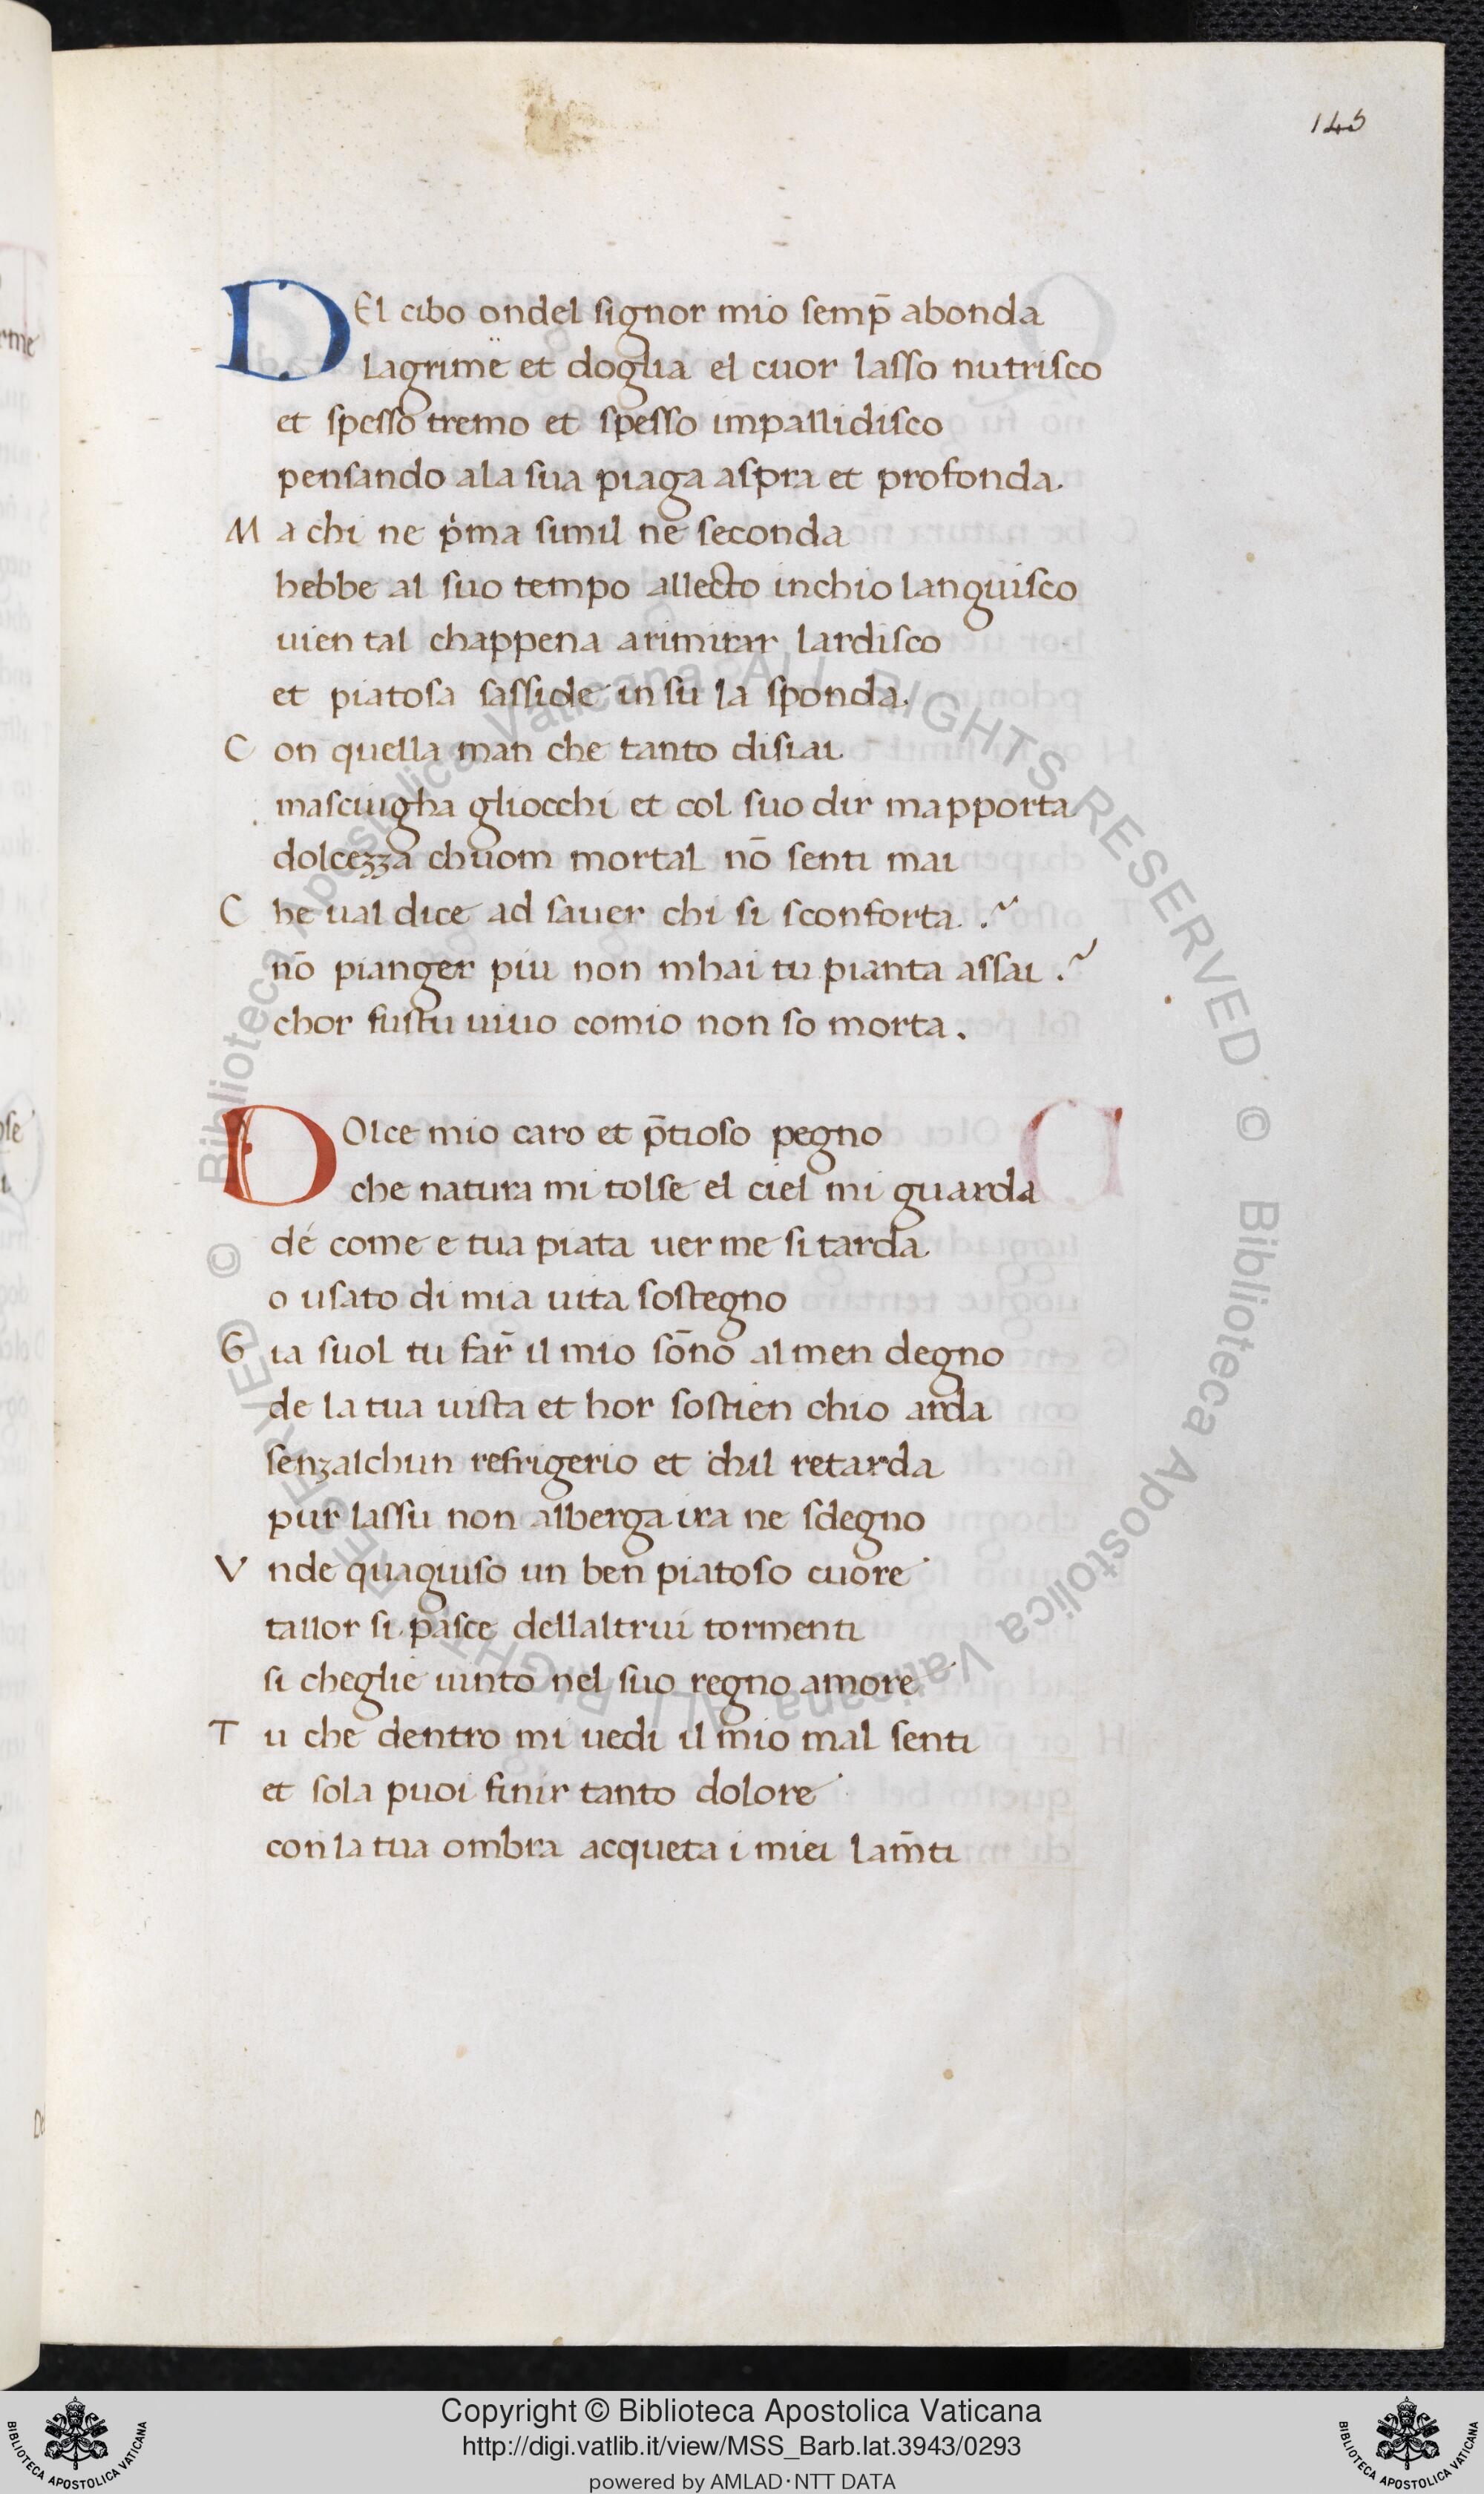 145
DEl cibo ondel signor mio semp̄ abonda
Lagrime et doglia el cuor lasso nutrisco
et spesso tremo et spesso impallidisco
pensando ala sua piaga aspra et profonda.
M a chi ne pͥma simil ne seconda
hebbe al suo tempo allecto inchio languisco
uien tal chappena arimirar lardisco
et piatosa sasside in su la sponda.
C on quella man che tanto disiai
masciugha gliocchi et col suo dir mapporta
dolcezza chuom mortal nō senti mai
C he ual dice ad sauer chi si sconforta.
nō pianger piu non mhai tu pianta assai
chor fustu uiuo comio non so morta.
DOlce mio caro et p̄tioso pegno
che natura mi tolse el ciel mi guarda
dé come e tua piata uer me si tarda
o usato di mia uita sostegno
G ia suol tu far̄ il mio sōno al men degno
de la tua uista et hor sostien chio arda
senzalchun refrigerio et chil retarda
pur lassu non alberga ira ne sdegno
V nde quagiuso un ben piatoso cuore
tallor si pasce dellaltrui tormenti
si cheglie uinto nel suo regno amore
T u che dentro mi uedi il mio mal senti
et sola puoi finir tanto dolore
con la tua ombra acqueta i miei lam̄ti
© Biblioteca Apostolica Vaticana ALL RIGHTS RESERVED
© Biblioteca Apostolica Vaticana ALL RIGHTS RESERVED
Copyright © Biblioteca Apostolica Vaticana
http://digi.vatlib.it/view/MSS_Barb.lat.3943/0293
powered by AMLAD·NTT DATA
BIBLIOTECA APOSTOLICA VATICANA
BIBLIOTECA APOSTOLICA VATICANA